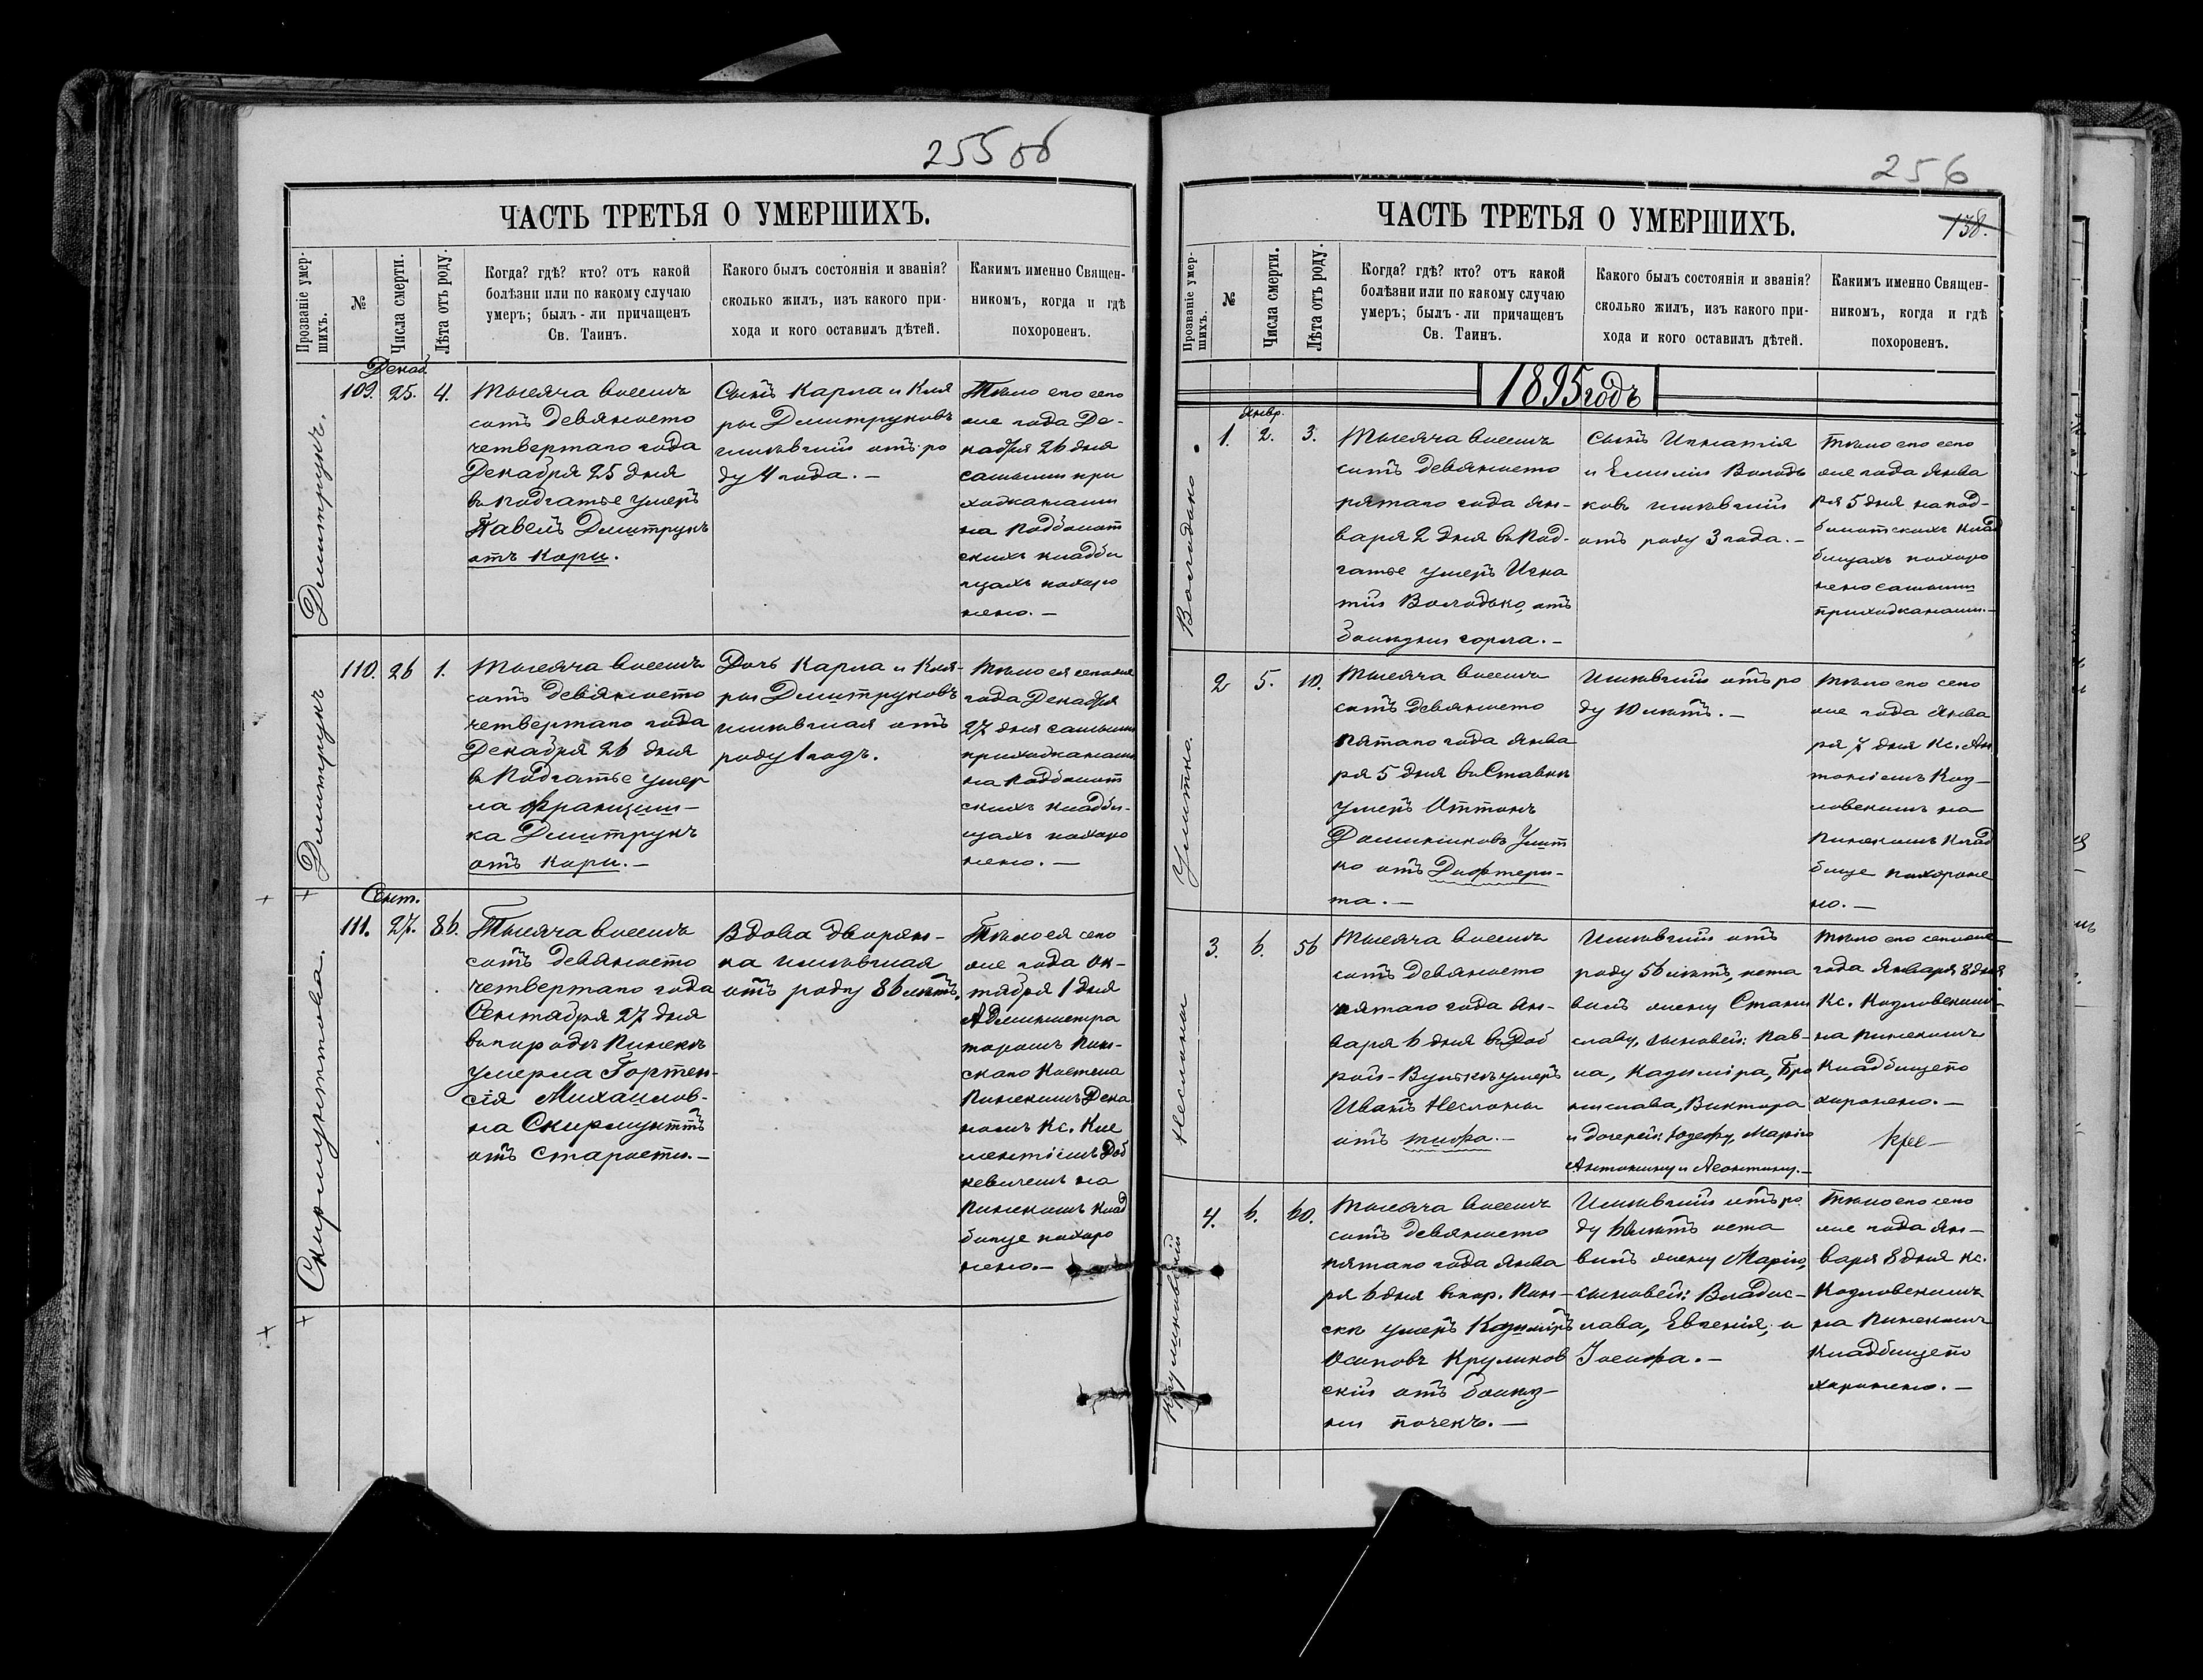 255 об
ЧАСТЬ ТРЕТЬЯ О УМЕРШИХЪ.
Прозваніе умер-
шихъ.
№
Числа смерти.
Лѣта отъ роду.
Когда? гдѣ? кто? отъ какой
болѣзни или по какому случаю
умеръ; былъ-ли причащенъ
Св. Таинъ.
Какого былъ состоянія и званія?
сколько жилъ, изъ какого при-
хода и кого оставилъ дѣтей.
Какимъ именно Священ-
никомъ, когда и гдѣ
похороненъ.
Декаб.
Дмитрукъ.
109. 25. 4.
Тысяча восемь
сотъ девяносто
четвертаго года
Декабря 25 дня
въ Подгатье умеръ
Павелъ Дмитрукъ
отъ кори.
Сынъ Карла и Кля
ры Дмитруковъ
имѣвшій отъ ро
ду 4 года. –
Тѣло его сего
же года Де-
кабря 26 дня
самыми при
хожанами
на Подболот
скихъ кладби
щахъ похоро
нено. –
Дмитрукъ
110. 26 1.
Тысяча восемь
сотъ девяносто
четвертаго года
Декабря 26 дня
въ Подгатье умер
ла Франциш-
ка Дмитрукъ
отъ кори. –
Дочь Карла и Кля-
ры Дмитруковъ
имѣвшая отъ
роду 1 годъ.
Тѣло ея сего же
года Декабря
27 дня самыми
прихожанами
на Подболот
скихъ кладби-
щахъ похоро
нено. –
Сент.
Скирмунттова.
111. 27. 86.
Тысяча восемь
сотъ девяносто
четвертаго года
Сентября 27 дня
въ городѣ Пинскѣ
умерла Гортен-
сія Михайлов-
на Скирмунттъ
отъ старости. –
Вдова дворян-
ка имѣвшая
отъ роду 86 лѣтъ.
Тѣло ея сего
же года Ок-
тября 1 дня
Администра
торомъ Пин-
скаго Костела
Пинскимъ Дека
номъ Кс. Кле
ментіемъ Доб
кевичемъ на
Пинскомъ клад
бище похоро
нено. –
256
138.
ЧАСТЬ ТРЕТЬЯ О УМЕРШИХЪ.
Прозваніе умер-
шихъ.
№
Числа смерти.
Лѣта отъ роду.
Когда? гдѣ? кто? отъ какой
болѣзни или по какому случаю
умеръ; былъ-ли причащенъ
Св. Таинъ.
Какого былъ состоянія и званія?
сколько жилъ, изъ какого при-
хода и кого оставилъ дѣтей.
Какимъ именно Священ-
никомъ, когда и гдѣ
похороненъ.
1895 годъ
Январ.
Володько
1. 2. 3.
Тысяча восемь
сотъ девяносто
пятаго года Ян-
варя 2 дня въ Под-
гатье умеръ Игна
тій Володько, отъ
болѣзни горла. –
Сынъ Игнатія
и Емиліи Володь
ковъ имѣвшій
отъ роду 3 года. –
Тѣло его сего
же года Янва
ря 5 дня на под-
болотскихъ клад
бищахъ похоро
нено самыми
прихожанами. –
Умитко.
2 5. 10.
Тысяча восемь
сотъ девяносто
пятаго года Янва
ря 5 дня въ Ставкѣ
умеръ Иттонъ
Доминиковъ Умит
ко отъ Дифтери-
та. –
Имѣвшій отъ ро
ду 10 лѣтъ. –
Тѣло его сего
же года Янва
ря 7 дня Кс. Ан
тоніемъ Коз-
ловскимъ на
Пинскомъ клад
бище похороне
но. –
3. 6. 56
Тысяча восемь
сотъ девяносто
пятаго года Ян-
варя 6 дня въ Доб
рой-Вулькѣ умеръ
Иванъ
отъ тифа. –
Имѣвшій отъ
роду 56 лѣтъ, оста
вилъ жену Стани
славу, сыновей: Пав-
ла, Казиміра, Бро
нислава, Виктора
и дочерей: Юзефу, Марію
Антонину и Леонтину. –
Тѣло его сего же
года Января 8 дня
Кс. Козловскимъ
на Пинскомъ
кладбище по
хоронено. –
Круликовскій
4. 6. 60.
Тысяча восемь
сотъ девяносто
пятаго года Янва
ря 6 дня въ гор. Пин-
скѣ умеръ Казиміръ
Осиповъ Круликов
скій отъ болѣз-
ни почекъ. –
Имѣвшій отъ ро
ду 60 лѣтъ оста
вилъ жену Марію,
сыновей: Владис-
лава, Евгенія, и
Іосифа. –
Тѣло его сего
же года Ян-
варя 8 дня Кс.
Козловскимъ
на Пинскомъ
кладбище по
хоронено. –